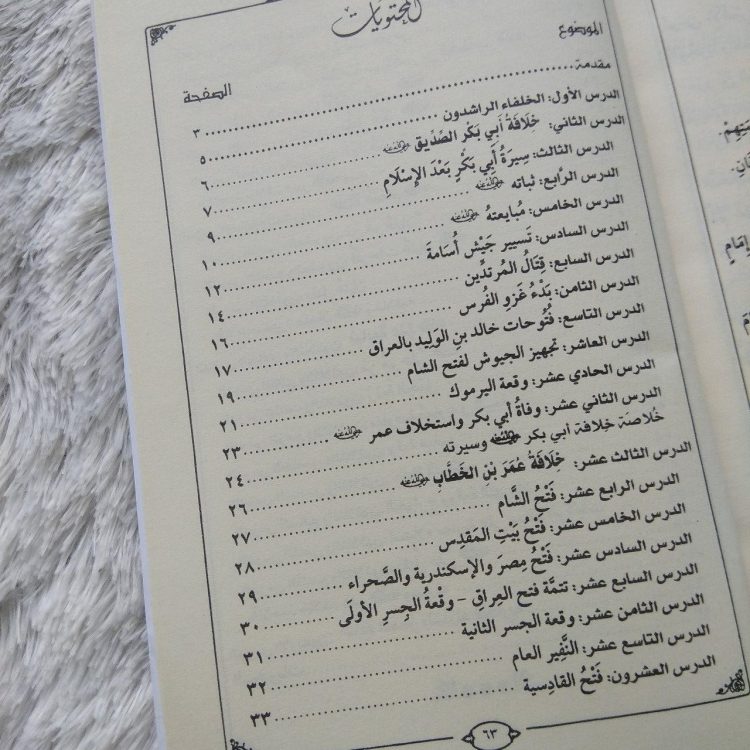 المحتويات
الموضوع الصفحة
مقدمة ٣
الدرس الأول: الخلفاء الراشدون ٥
الدرس الثاني: خِلَافَةُ أَبِي بَكْرٍ الصِّدِّيق رضي الله عنه ٦
الدرس الثالث: سِيرَةُ أَبِي بَكْرٍ بَعْدَ الإِسْلَامِ ٧
الدرس الرابع: ثباته رضي الله عنه ٩
الدرس الخامس: مُبايعتهُ رضي الله عنه ١٠
الدرس السادس: تَسيير جَيْش أُسامةَ ١٢
الدرس السابع: قِتَالُ المُرتدِّين ١٤
الدرس الثامن: بَدْءُ غَزوِ الفُرس ١٦
الدرس التاسع: فُتُوحات خالد بنِ الوَلِيد بالعراق ١٧
الدرس العاشر: تجهيز الجيوش لفتح الشام ١٩
الدرس الحادي عشر: وقعة اليرموك ٢١
الدرس الثاني عشر: وفاةُ أبي بكر واستخلاف عمر رضي الله عنه ٢٣
خُلاصَة خِلافة ابي بكر رضي الله عنه وسيرته ٢٤
الدرس الثالث عشر: خِلَافَةُ عُمَرَ بْنِ الخَطَّابِ رضي الله عنه ٢٦
الدرس الرابع عشر: فَتْحُ الشَّام ٢٧
الدرس الخامس عشر: فَتْحُ بَيْتِ المَقدِس ٢٨
الدرس السادس عشر: فَتْحُ مِصرَ والإسكندرية والصَّحراء ٢٩
الدرس السابع عشر: تتمَّة فتح العِراقِ – وقْعةُ الجِسرِ الأولَى ٣٠
الدرس الثامن عشر: وقعة الجسر الثانية ٣١
الدرس التاسع عشر: النَّفِير العام ٣٢
الدرس العشرون: فَتْحُ القَادِسية ٣٣
٦٣
إمَامٍ